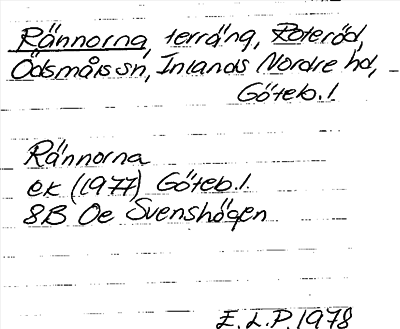 Rännorna, terräng, Roteröd,
Ödsmåls sn, Inlands Nordre hd,
Göteb. l.
Rännorna
ek (1977) Göteb. l.
8B Oe Svenshögen
E. L. P. 1978